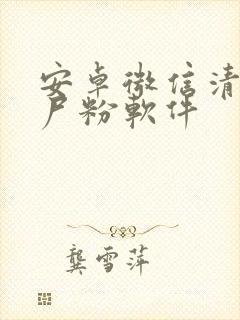 安卓微信清
尸粉軟件
龔雪萍